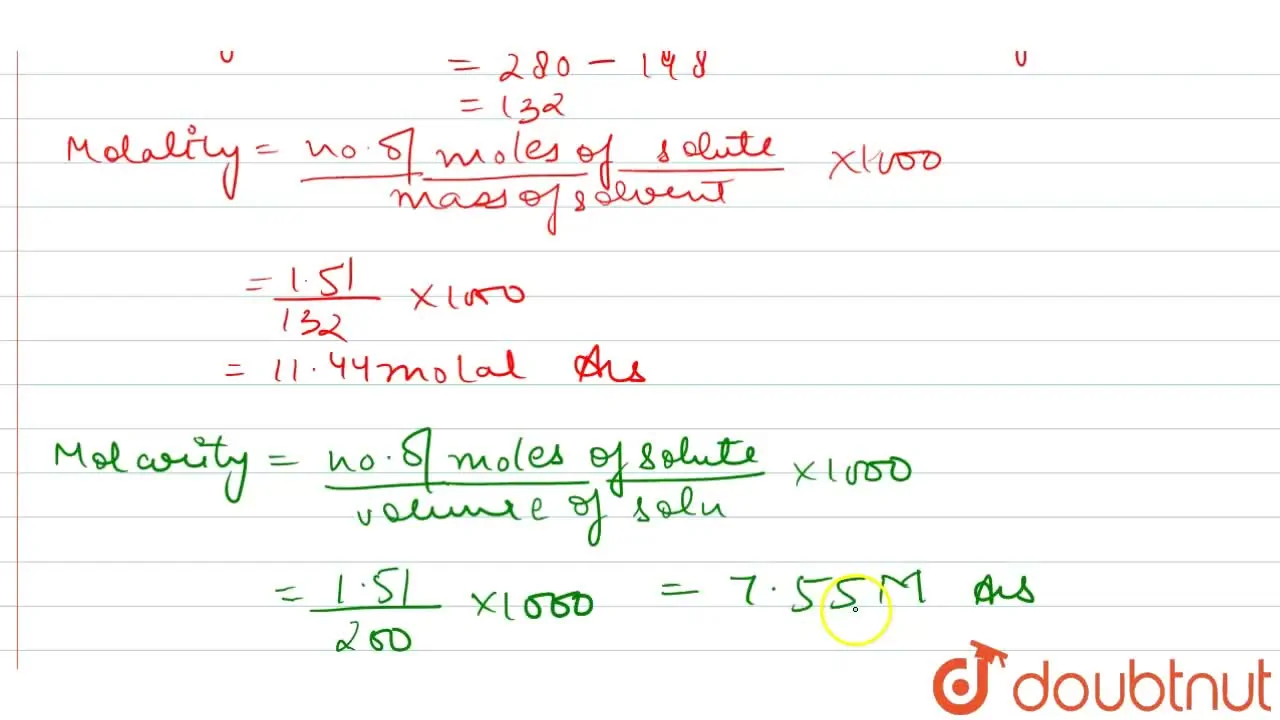 = 280 - 148
= 132
Molality = no. of moles of solute / mass of solvent × 1000
= 1.51 / 132 × 1000
= 11.44 molal Ans
Molarity = no. of moles of solute / volume of solu × 1000
= 1.51 / 200 × 1000 = 7.55 M Ans
doubtnut